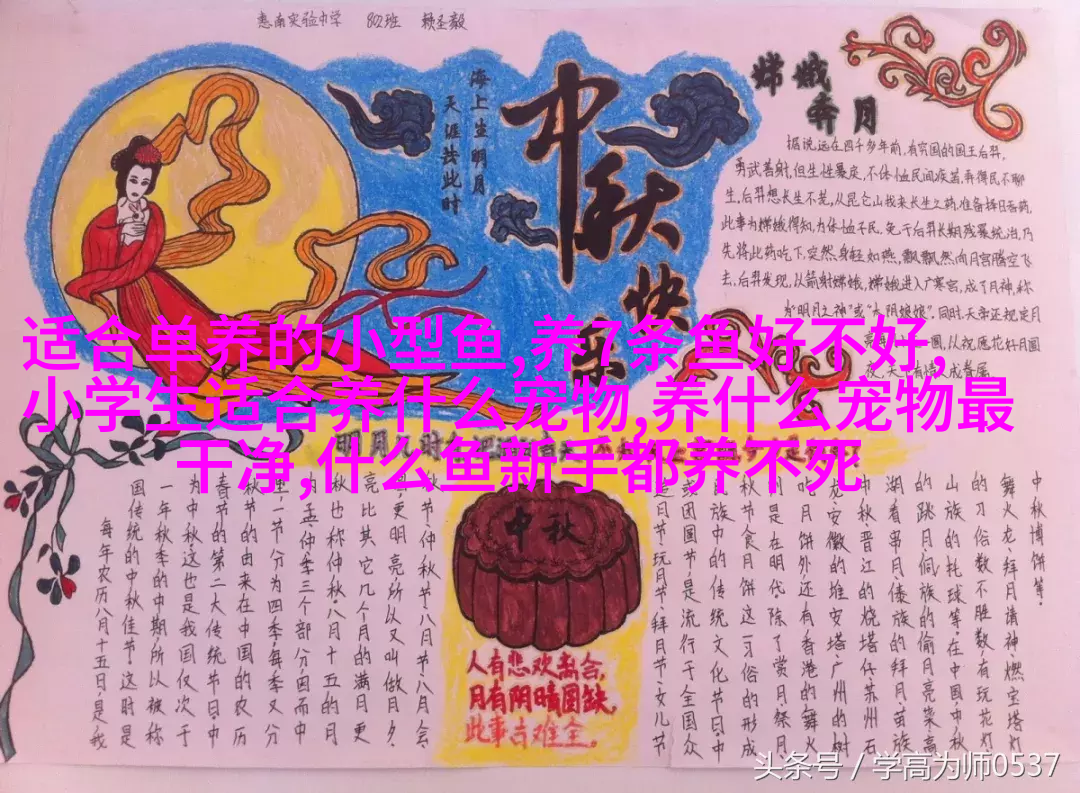 惠南实验中学 802班 赖圣毅
海上生明月
天涯共此时
中秋快乐
嫦娥
奔月
据说,远在四千多年前,有穷国的国王后羿,
勇武善射,但生性暴戾,不体恤民间疾苦,弄得民不聊
生,后羿想长生不老,从昆仑山找来长生之药,准备择日吞药,
此事为嫦娥得知,为体恤平民,免于后羿长期残暴统治,乃
先将此药吃下,突然身轻如燕,飘飘然向月宫腾空飞
去,后羿发现,以箭射嫦娥,嫦娥进入广寒宫,成了月神,称
为"明月之神"或"太阴娘娘"。同时,天帝还规定月
圆,从祝愿花好月圆
适合单养的小型鱼,养7条鱼好不好,
小学生适合养什么宠物,养什么宠物最
干净,什么鱼新手都养不死
明月几时
每年农历八月十五日,是我
国传统的中秋佳节。这时是
一年秋季的中期,所以被称
为中秋。这也是我国仅次于
春节的第二大传统节日。中
秋节的由来在中国的农历
里,一年分为四季,每季又分
孟、仲、季三个部分,因而中
秋也称仲秋。八月十五的月
亮比其它几个月的满月更
更明亮,所以又叫做月夕,
秋节、仲秋节、八月节、八月会
追月节、玩月节、拜月节、女儿节
或团圆节,是流行于全国众
民族中的传统文化节日。中
秋节食月饼这一习俗的形成
是在明代。除了赏月、祭月
吃月饼外,还有香港的舞火
龙、安徽的堆宝塔、广州的树
中秋、晋江的烧塔仔、苏州石
湖看串月、傣族的拜月、苗族
的跳月、侗族的偷月亮菜、高
山族的托球等。在中国,中秋
的习俗数不胜数,有玩花灯、
舞火龙、拜月请神、燃宝塔灯、
中秋博饼等。
中秋
人有悲欢离合,
月有阴晴圆缺,
此事古难全。
头条号 / 学高为师0537